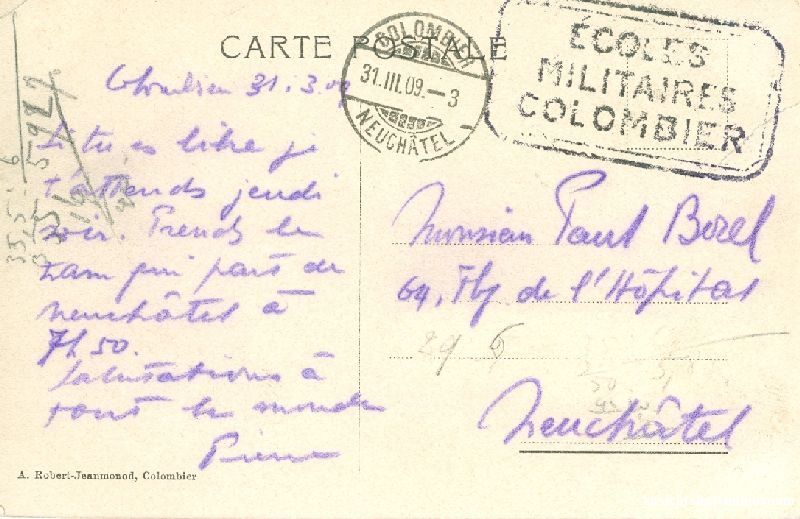 CARTE POSTALE
COLOMBIER
31.III.09.-3
NEUCHÂTEL
ÉCOLES
MILITAIRES
COLOMBIER
Colombier 31.3.09
Si tu es libre je
t'attends jeudi
soir. Prends le
tram qui part de
Neuchâtel à
7h50.
Salutations à
tout le monde
Pierre
Monsieur Paul Borel
64, Fbg de l'Hôpital
29 6
Neuchâtel
A. Robert-Jeanmonod, Colombier